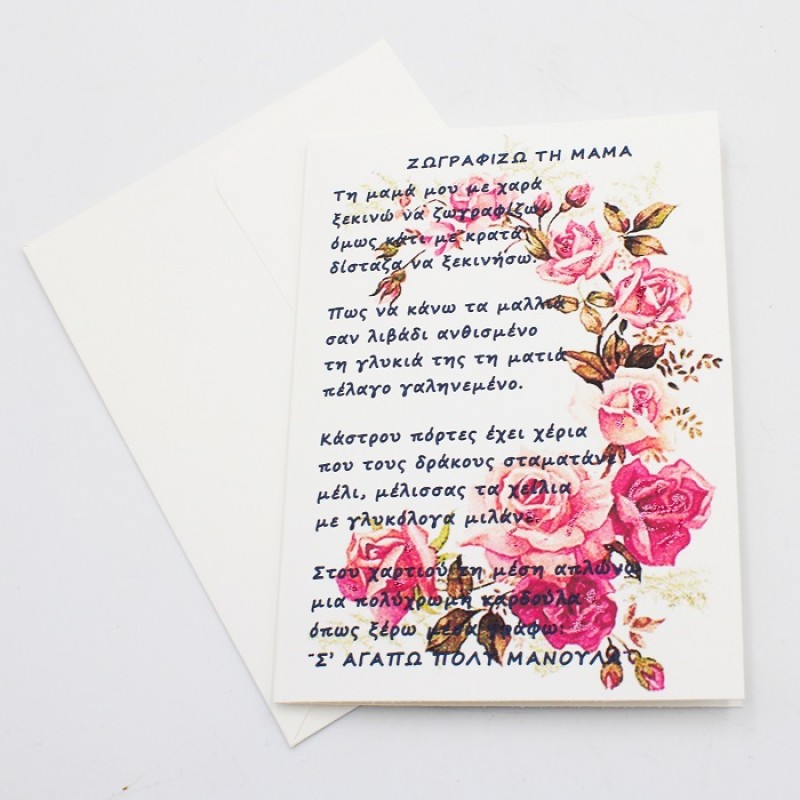 ΖΩΓΡΑΦΙΖΩ ΤΗ ΜΑΜΑ
Τη μαμά μου με χαρά
ξεκινώ να ζωγραφίζω
όμως κάτι με κρατά,
δίσταζα να ξεκινήσω.
Πως να κάνω τα μαλλιά
σαν λιβάδι ανθισμένο
τη γλυκιά της τη ματιά
πέλαγο γαληνεμένο.
Κάστρου πόρτες έχει χέρια
που τους δράκους σταματάνε
μέλι, μέλισσας τα χείλια
με γλυκόλογα μιλάνε.
Στου χαρτιού τη μέση απλώνω
μια πολύχρωμη καρδούλα
όπως ξέρω μέσα γράφω:
"Σ' ΑΓΑΠΩ ΠΟΛΥ ΜΑΝΟΥΛΑ"